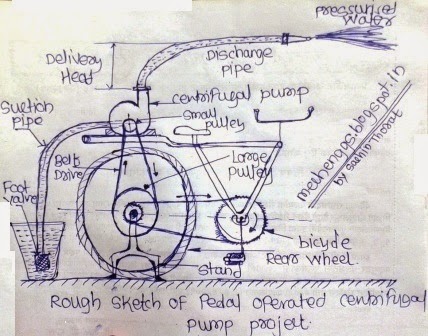 pressurised
water
Delivery
Head
Discharge
pipe
centrifugal pump
Small
pulley
Suction
pipe
Belt
Drive
Large
pulley
Foot
valve
bicycle
Rear wheel.
Stand
mechengos.blogspot.in
by Sachin Thorat
Rough sketch of Pedal operated centrifugal
pump project.